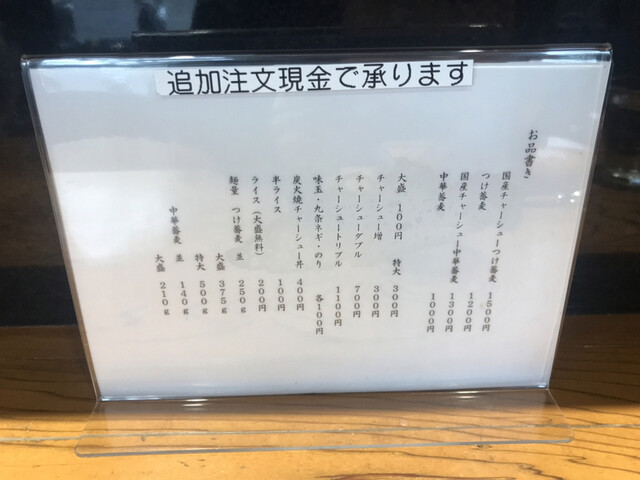 追加注文現金で承ります
お品書き
国産チャーシューつけ蕎麦 1500円
つけ蕎麦 1200円
国産チャーシュー中華蕎麦 1300円
中華蕎麦 1000円
大盛 100円 特大 300円
チャーシュー増 300円
チャーシューダブル 700円
チャーシュートリプル 1100円
味玉・九条ネギ・のり 各100円
炭火焼チャーシュー丼 400円
半ライス 100円
ライス（大盛無料） 200円
麺量 つけ蕎麦 並 250g
大盛 375g
特大 500g
中華蕎麦 並 140g
大盛 210g